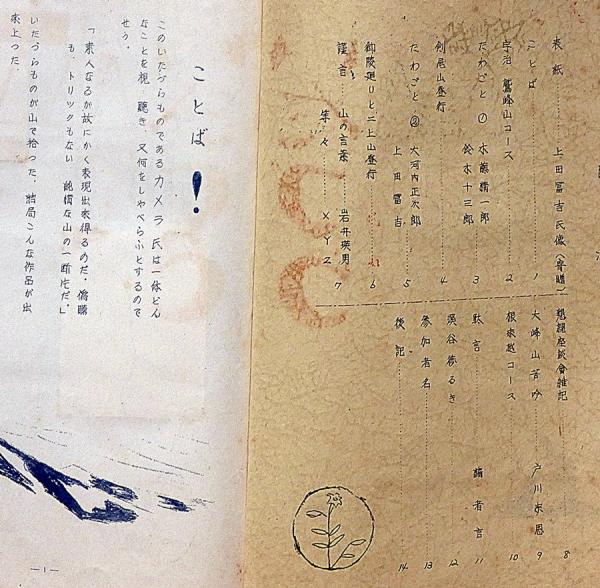 表紙 上田冨吉氏像(寄贈)
ことば 1
宇治・鷲峰山コース 2
たわごと① 木藤精一郎 3
鈴木十三郎
釈尾山登行 4
たわごと② 大河内正次郎 5
上田冨吉
御陵廻りと二上山登行 6
謹言 山の言葉 岩井瑛男 7
等々 XYZ
懇親座談會雑記 8
大峰山苦吟 戸川求思 9
根来越コース 10
駄言 編者言 11
渓谷歩るき 12
参加者名 13
後記 14
ことば!
このいたづらものであるカメラ氏は一体どん
なことを視、聴き、又何をしゃべらふとするので
せう。
「素人なるが故にかく表現出来得るのだ。偽瞞
も、トリックもない純情な山の一断片だ。」
いたづらものが山で拾った、結局こんな作品が出
来上った。
—1—